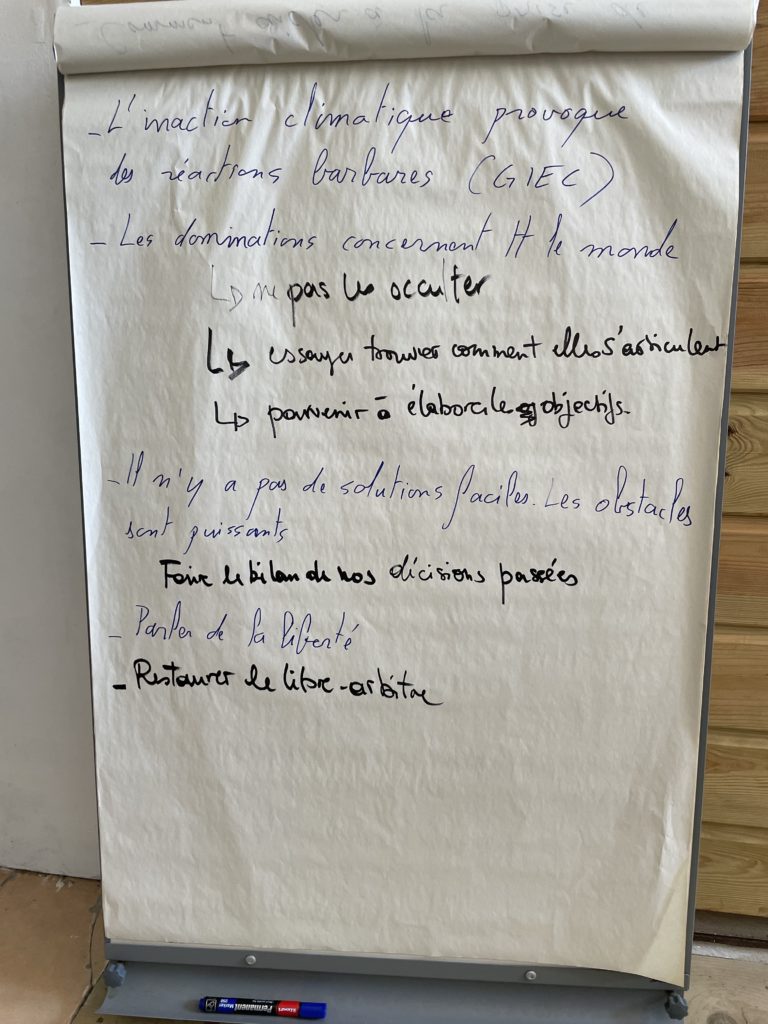 Comment aider à la prise de
- L'inaction climatique provoque
des réactions barbares (GIEC)
- Les dominations concernent tt le monde
↳ ne pas les occulter
↳ essayer trouver comment elles s'articulent
↳ parvenir à élaborer les objectifs.
- Il n'y a pas de solutions faciles. Les obstacles
sont puissants
Faire le bilan de nos décisions passées
- Parler de la liberté
- Restaurer le libre-arbitre
PERMANENT
Marker